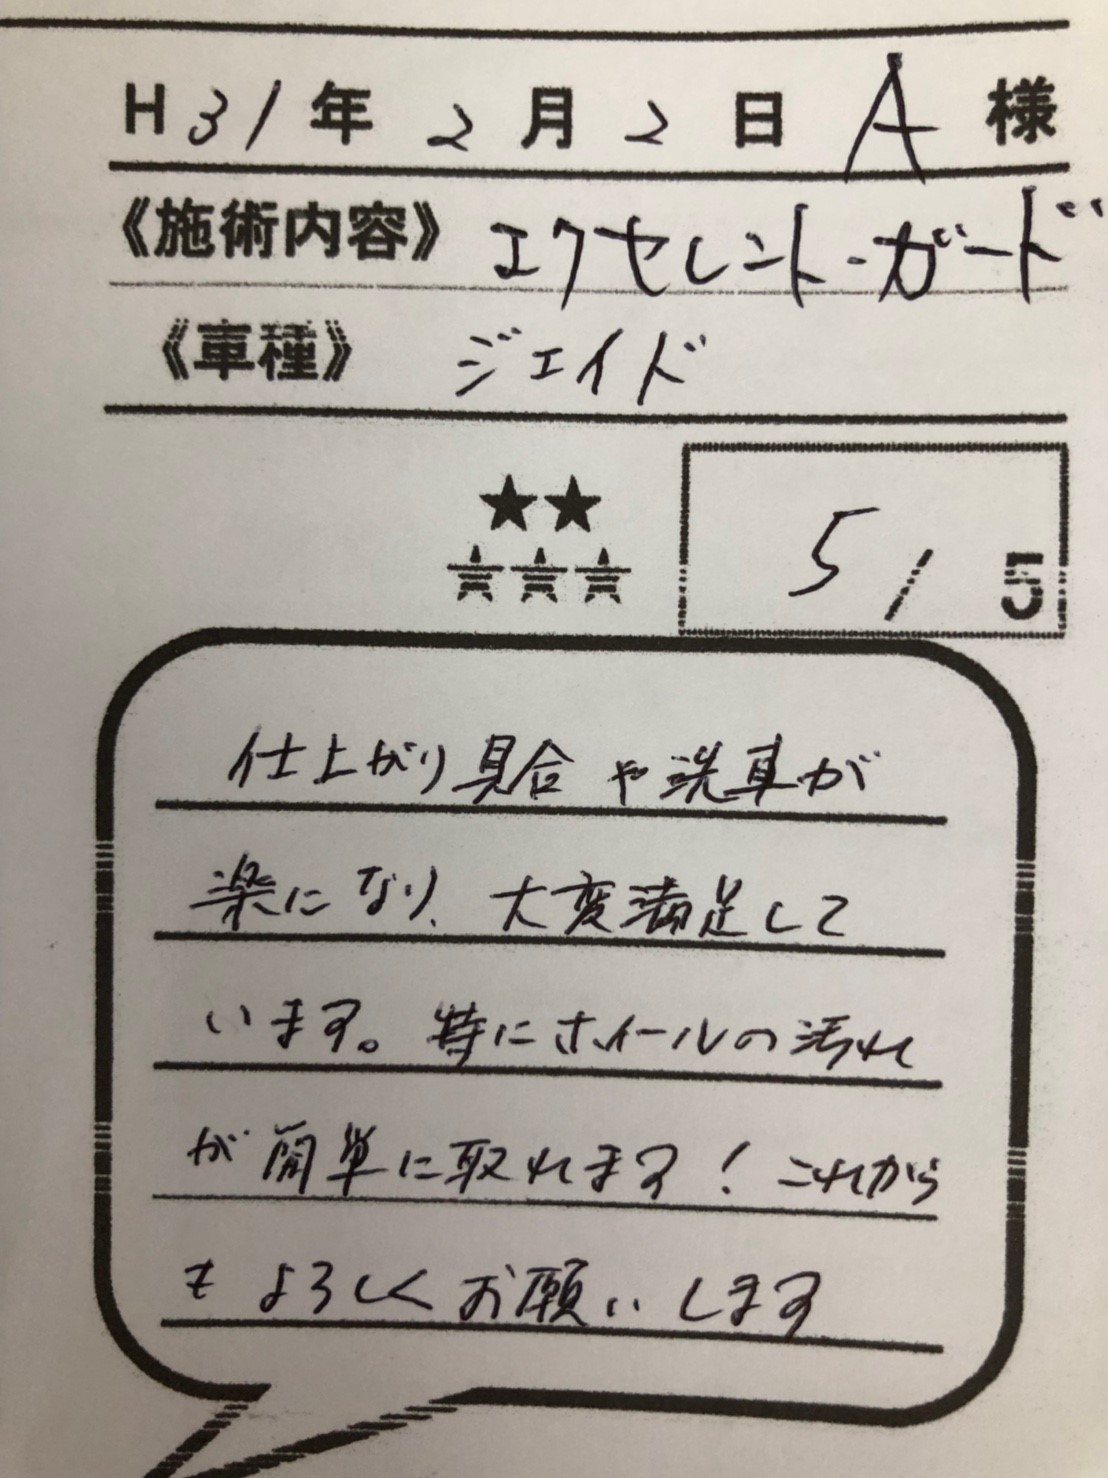 H31年2月2日 A 様
《施術内容》 エクセレント・ガード
《車種》 ジェイド
★★
★★★
5/5
仕上がり具合や洗車が
楽になり、大変満足して
います。特にホイールの汚れ
が簡単に取れます！これから
もよろしくお願いします